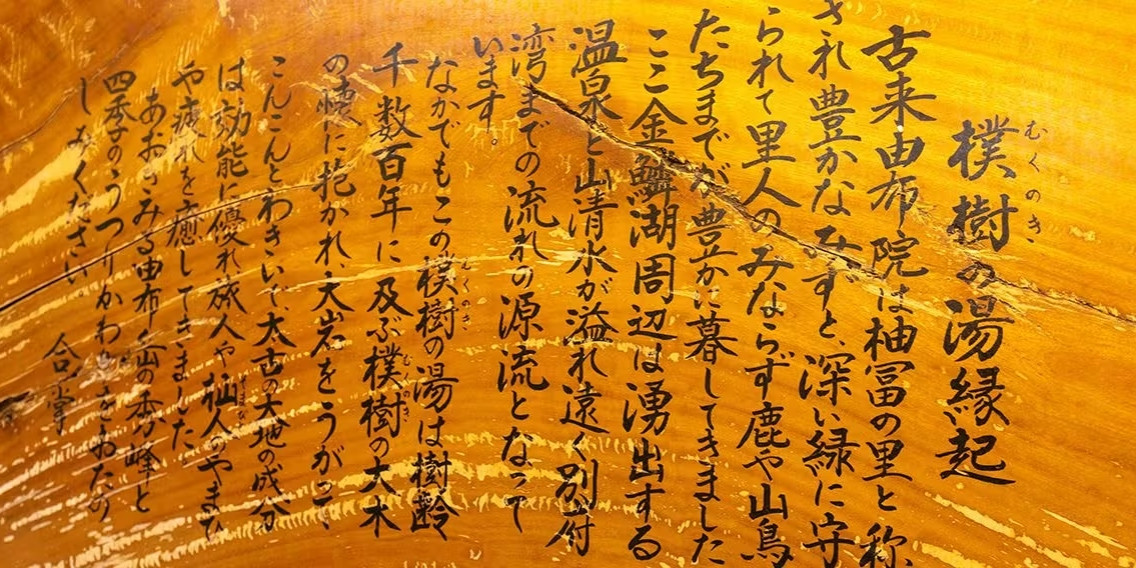 樸樹の湯縁起
むくのき
古来由布院は柚冨の里と称
され豊かなみずと、深い緑に守
られて里人のみならず鹿や山鳥
たちまでが豊かに暮してきました
ここ金鱗湖周辺は湧出する
温泉と山清水が溢れ遠く別府
湾までの流れの源流となって
います。
なかでもこの樸樹の湯は樹齢
むくのき
千数百年に及ぶ樸樹の大木
むくのき
の懐に抱かれ、大岩をうがって、
こんこんとわきいで、太古の大地の成分
は効能に優れ旅人や仙人のやまひ
や疲れを癒してきました
あおぎみる由布山の秀峰と
四季のうつりかわりを
しみください。
合掌